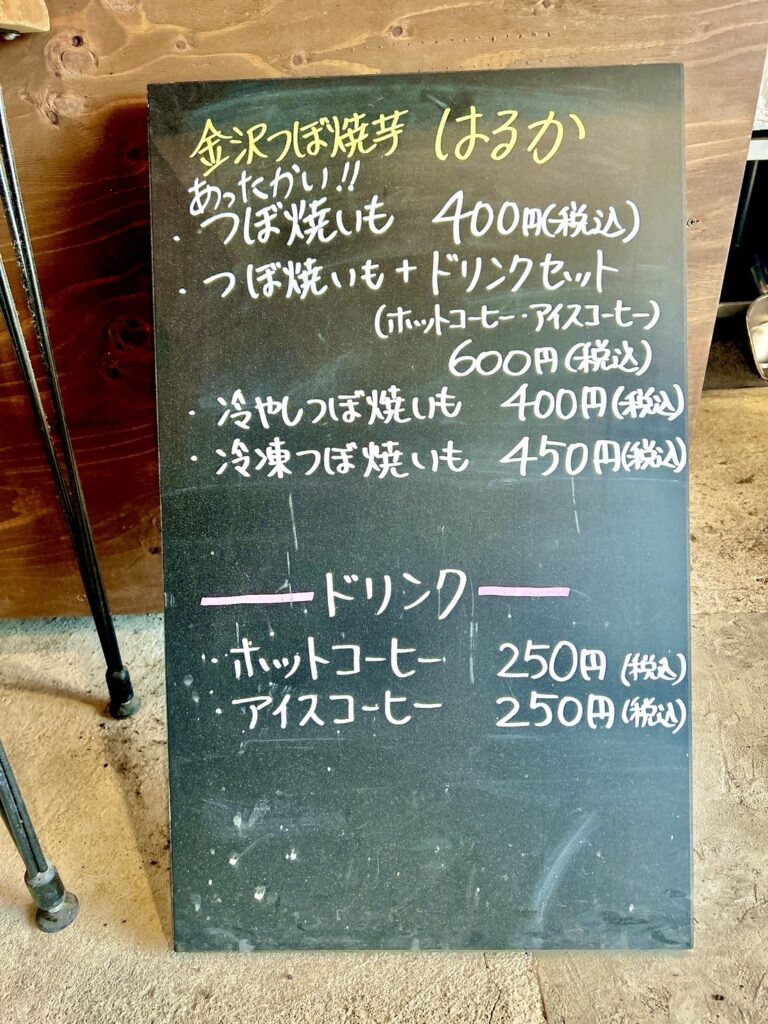 金沢つぼ焼芋 はるか
あったかい!!
・つぼ焼いも 400円(税込)
・つぼ焼いも+ドリンクセット
(ホットコーヒー・アイスコーヒー)
600円(税込)
・冷やしつぼ焼いも 400円(税込)
・冷凍つぼ焼いも 450円(税込)
ドリンク
・ホットコーヒー 250円(税込)
・アイスコーヒー 250円(税込)